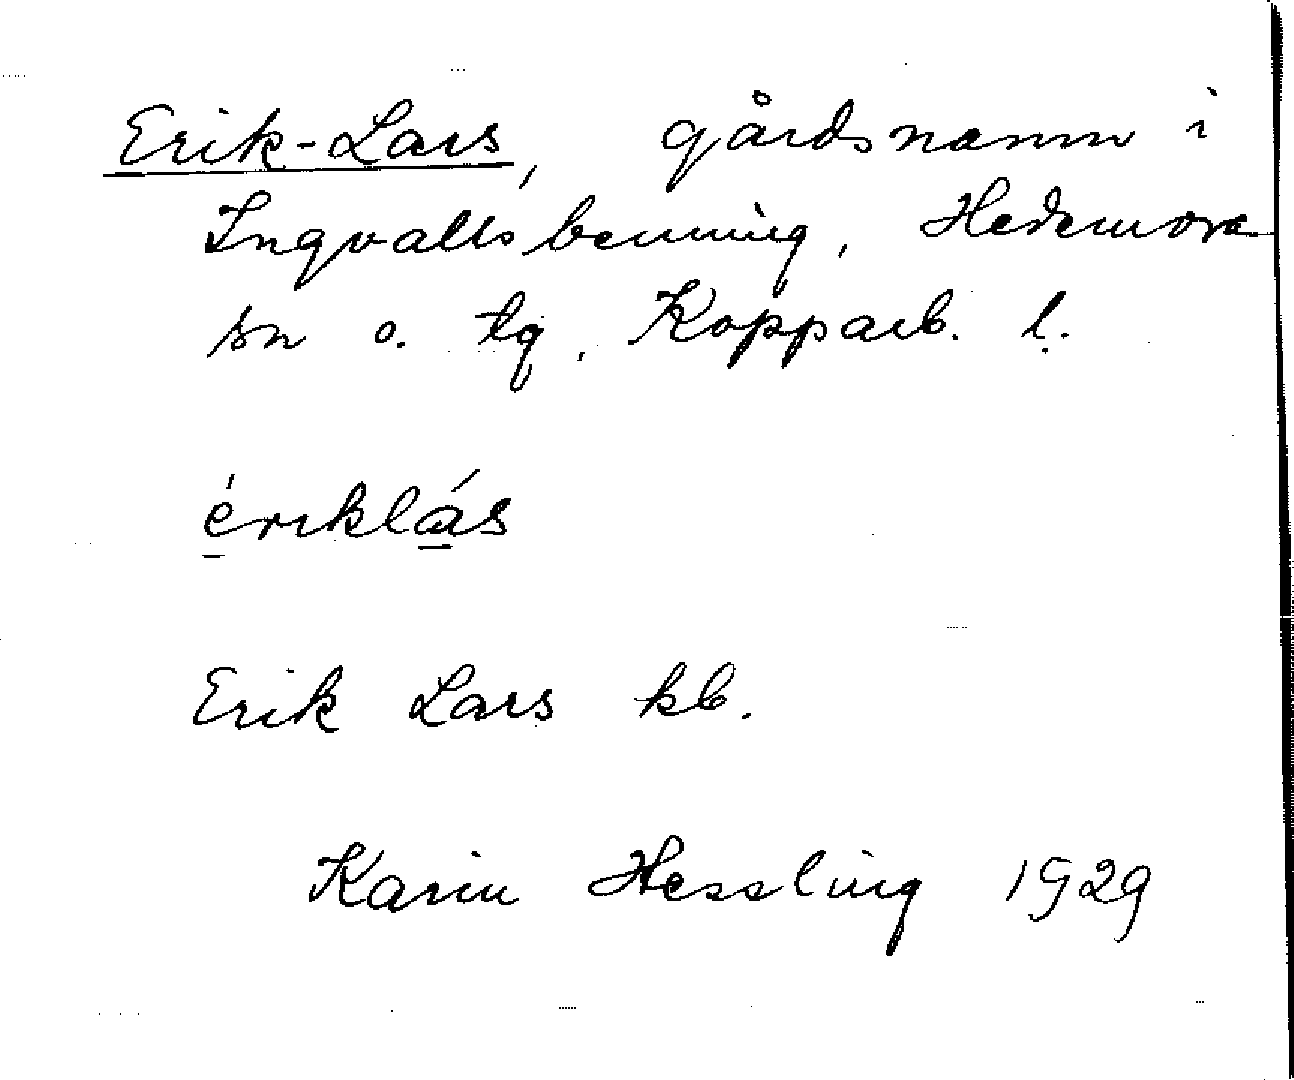 Erik-Lars, gårdsnamn i
Ingvallsbenning, Hedemora
sn o. tg, Kopparb. l.
ériklás
Erik Lars kb.
Karin Hessling 1929